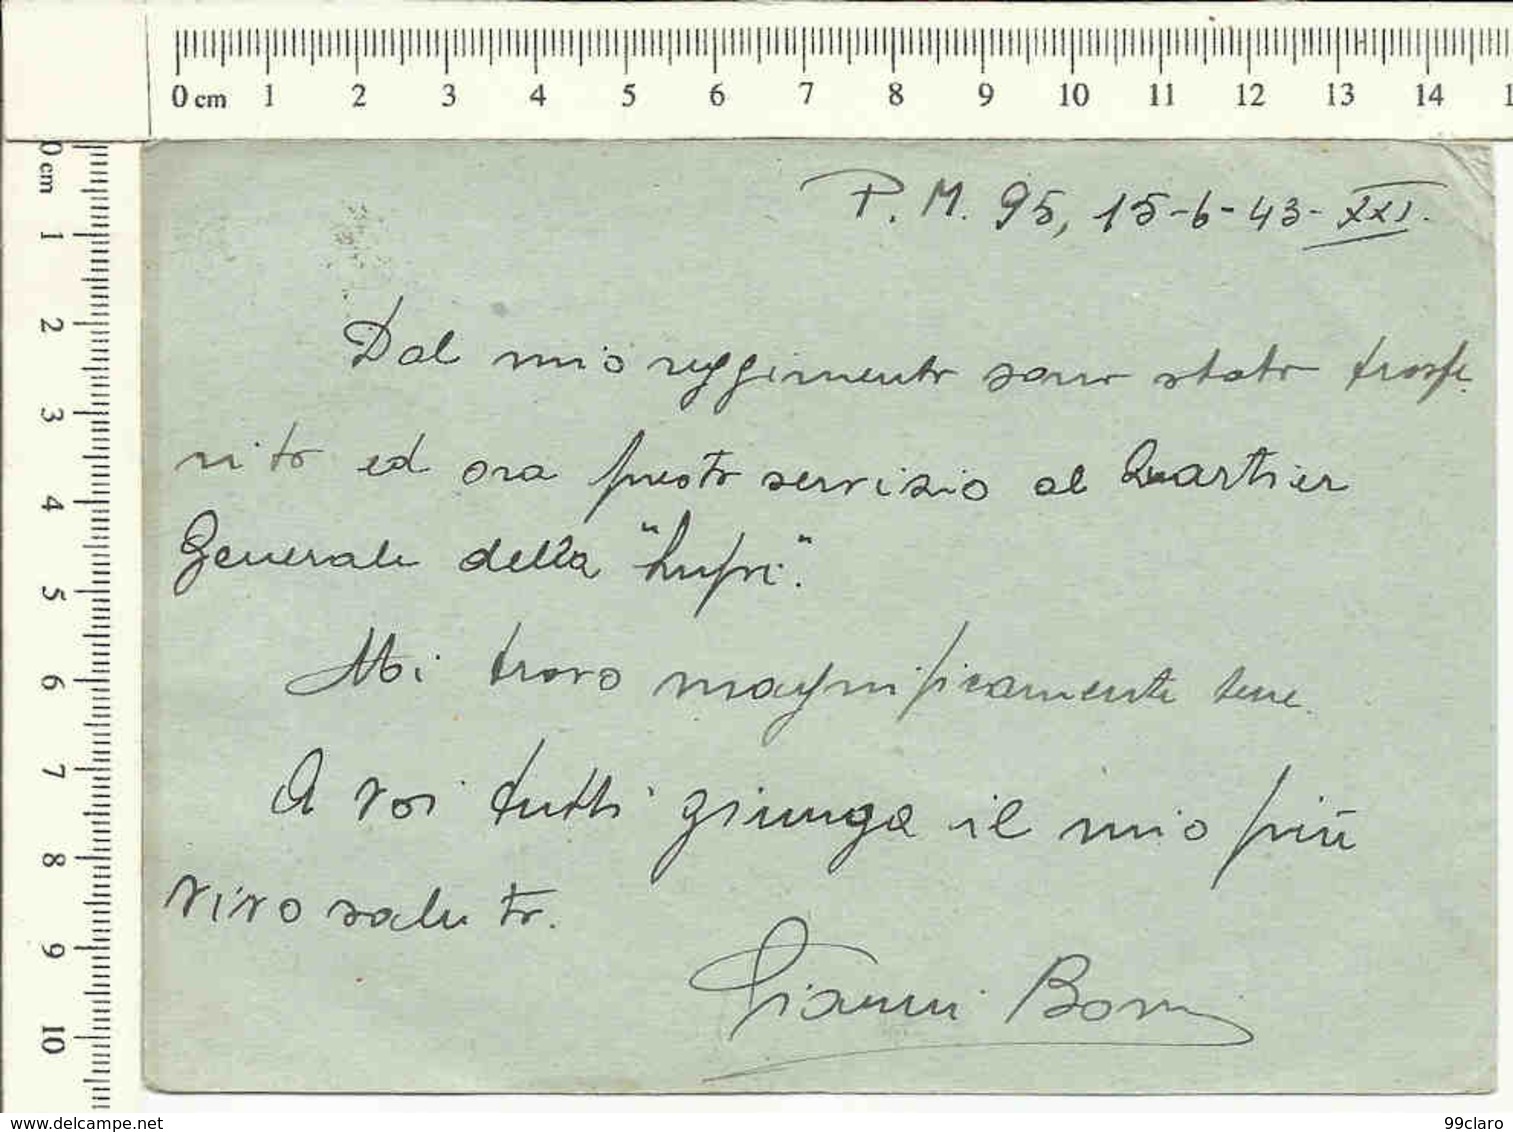 0 cm 1 2 3 4 5 6 7 8 9 10 11 12 13 14 1
0 cm 1 2 3 4 5 6 7 8 9 10
P. M. 95, 15-6-43-XXI.
Dal mio reggimento sono stato trasfe
rito ed ora presto servizio al Quartier
Generale della "Lupi".
Mi trovo magnificamente bene.
A voi tutti giunga il mio più
vivo saluto.
Gianni
www.delcampe.net
99claro